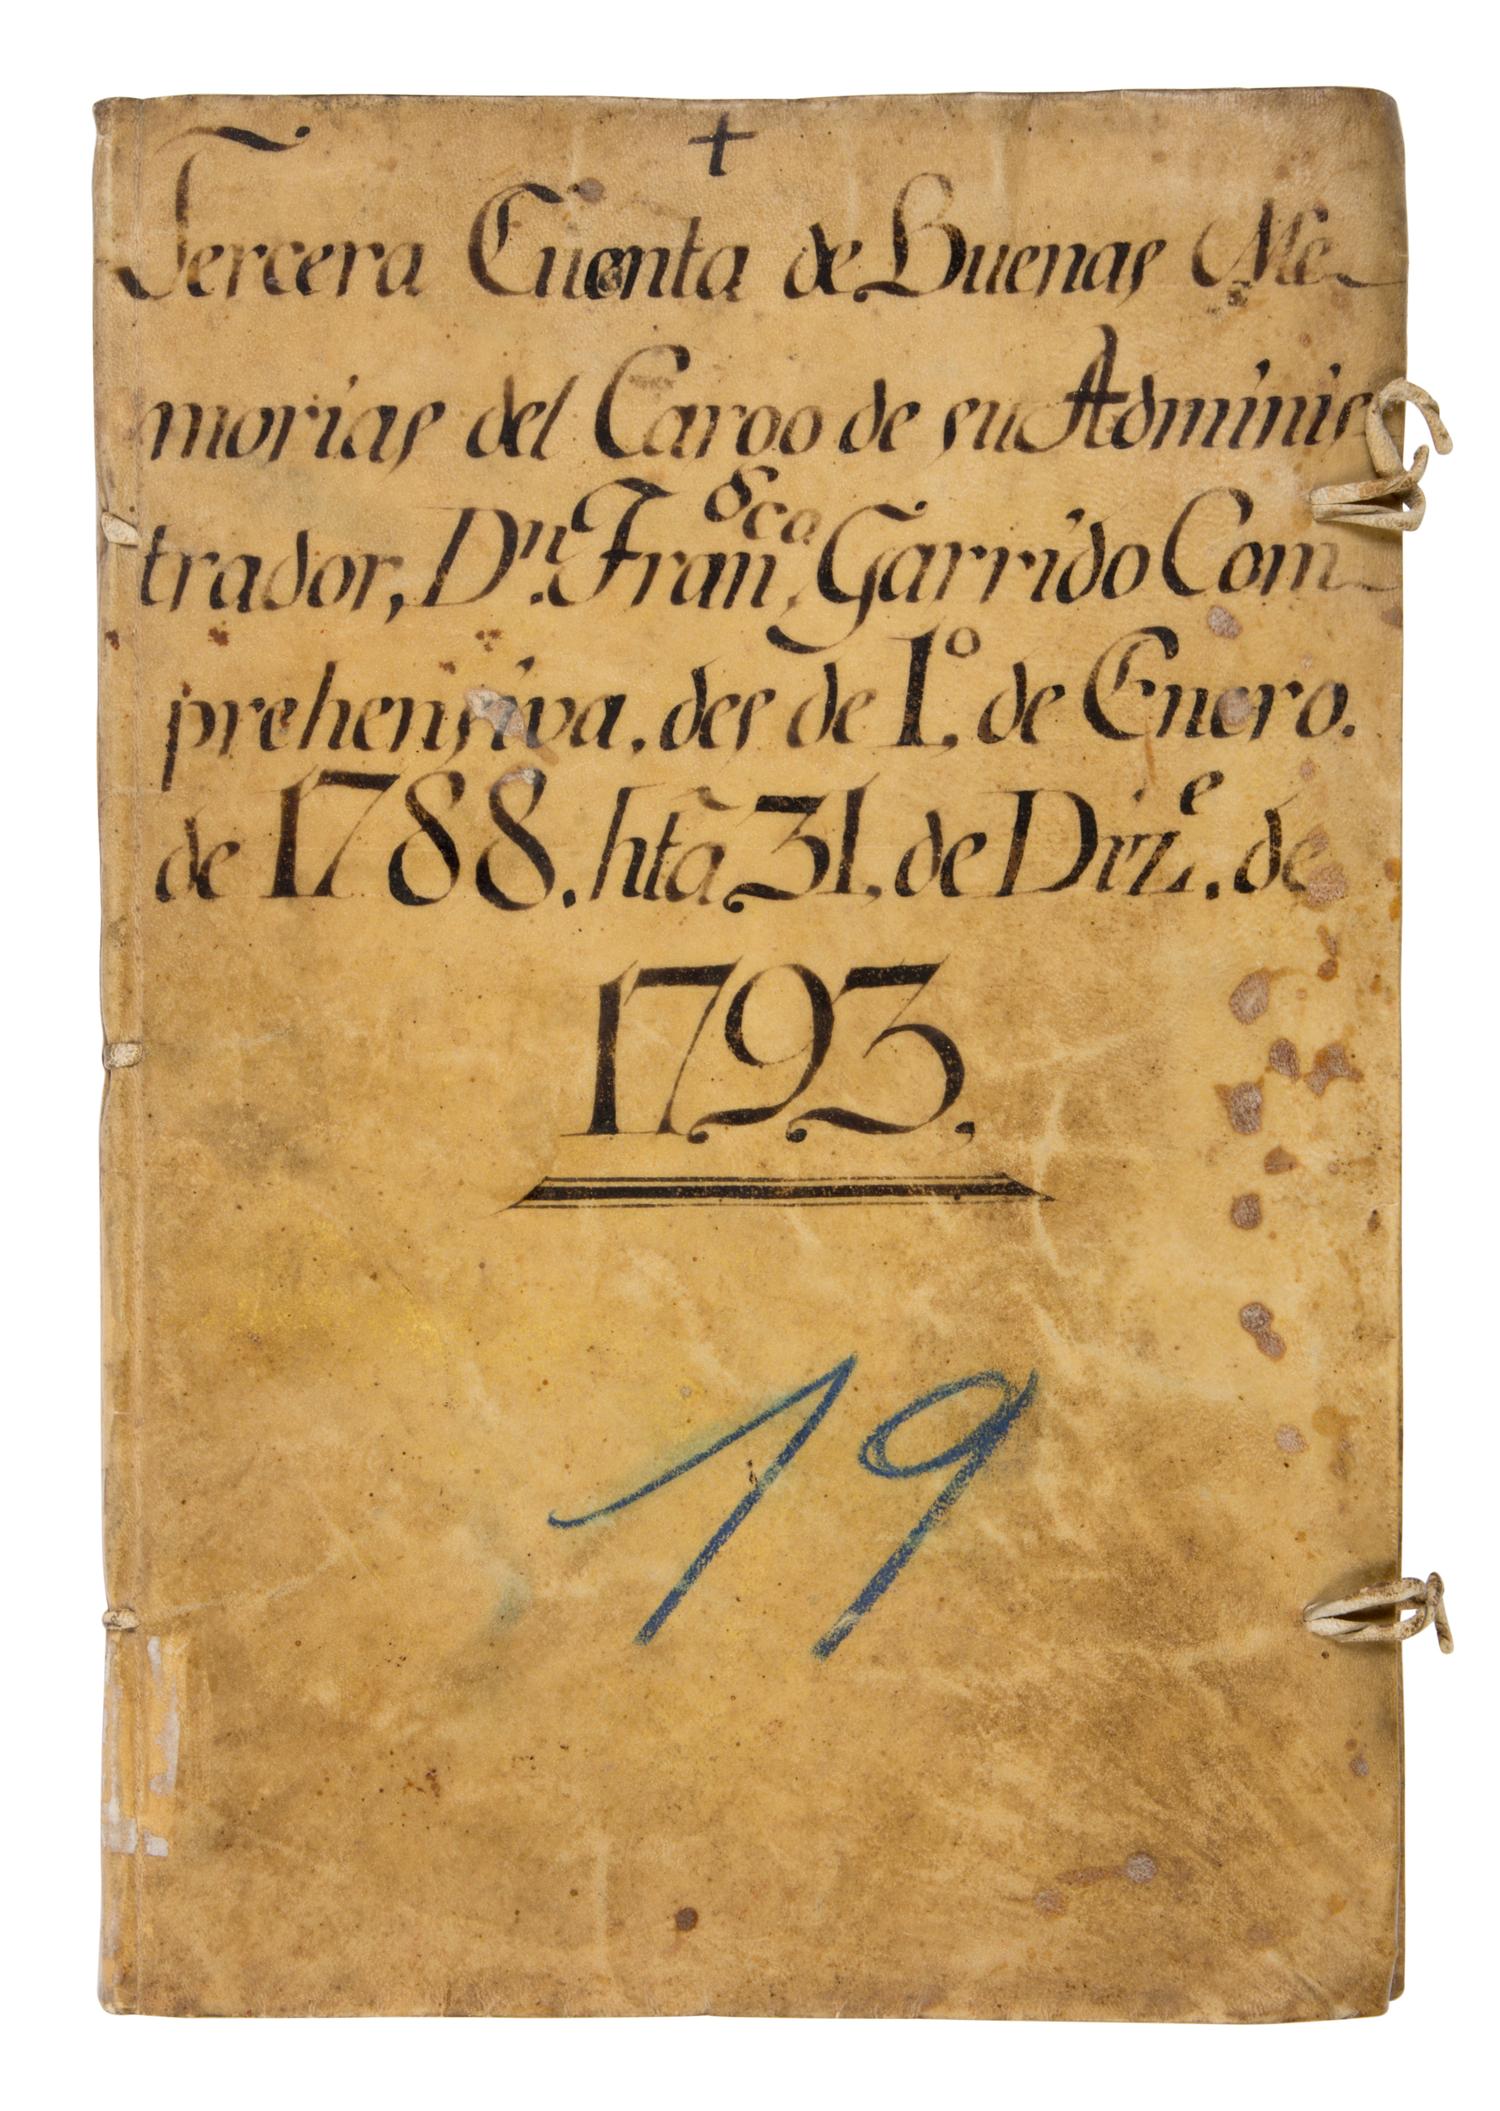 +
Tercera Cuenta de Buenas Me-
morias del Cargo de su Adminis-
trador, Dn. Franco. Garrido Com-
prehensiva, des de 1º. de Enero.
de 1788. hta 31, de Dize. de
1793,
19